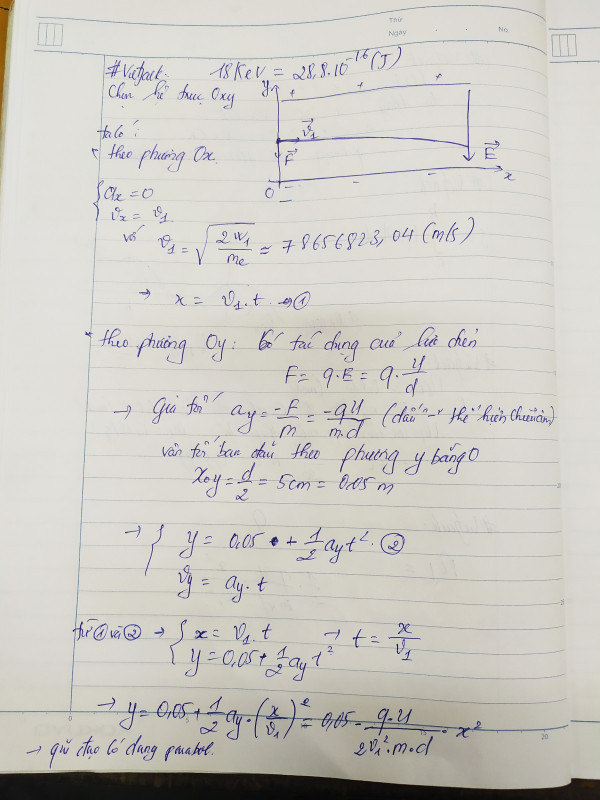 Thứ
Ngày
No.
#Vietjack: 18KeV = 28,8.10^-16 (J)
Chọn hệ trục Oxy
y
+ + +
ta có:
v⃗₁
F⃗
E⃗
* theo phương Ox.
O
- - -
x
{ ax = 0
vx = v₁
với v₁ = √(2W₁/me) ≈ 78656823,04 (m/s)
→ x = v₁.t → ①
* theo phương Oy: bị tác dụng của lực điện
F = q.E = q.U/d
→ Gia tốc ay = -F/m = -qU/m.d (dấu "-" thể hiện chiều âm)
vận tốc ban đầu theo phương y bằng 0
x₀y = d/2 = 5cm = 0,05 m
→ { y = 0,05 + 1/2 ay t². ②
vy = ay.t
từ ① và ② → { x = v₁.t → t = x/v₁
y = 0,05 + 1/2 ay t²
→ y = 0,05 + 1/2 ay.(x/v₁)² = 0,05 - q.U/2v₁².m.d . x²
→ quĩ đạo có dạng parabol.
0
20